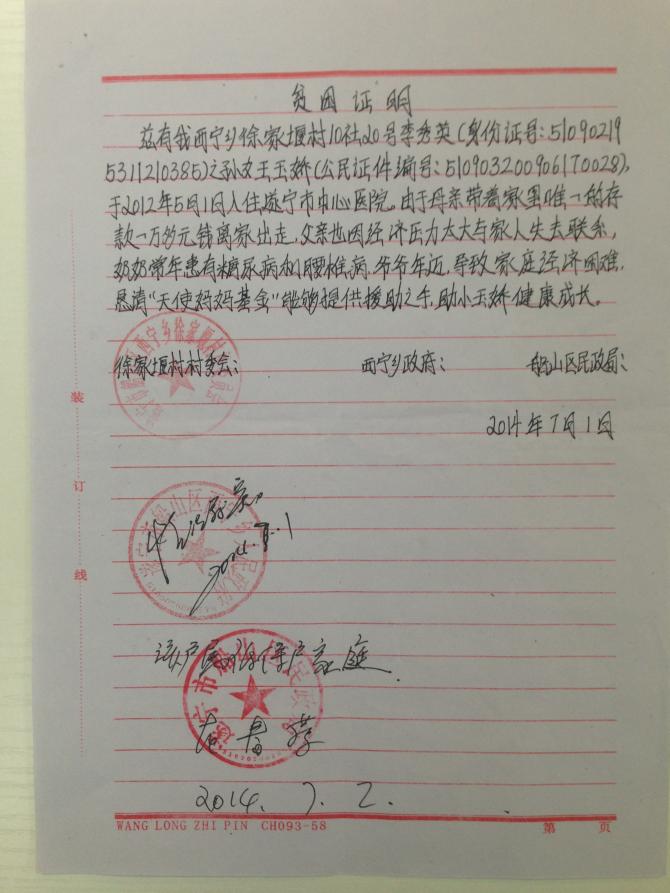 贫困证明
兹有我西宁乡徐家堰村10社20号李秀英(身份证号:51090219
5311210385)之孙女王玉娇(公民证件编号:510903200906170028),
于2012年5月1日入住遂宁市中心医院,由于母亲带着家里唯一的存
款一万多元钱离家出走,父亲也因经济压力太大与家人失去联系,
奶奶常年患有糖尿病和腰椎病,爷爷年迈,导致家庭经济困难,
恳请“天使妈妈基金”能够提供援助之手,助小玉娇健康成长。
徐家堰村村委会: 西宁乡政府: 船山区民政局:
2014年7月1日
情况属实
2014.7.1
该户属低保户家庭
2014.7.2.
装
订
线
WANG LONG ZHI PIN CH093-58 第 页